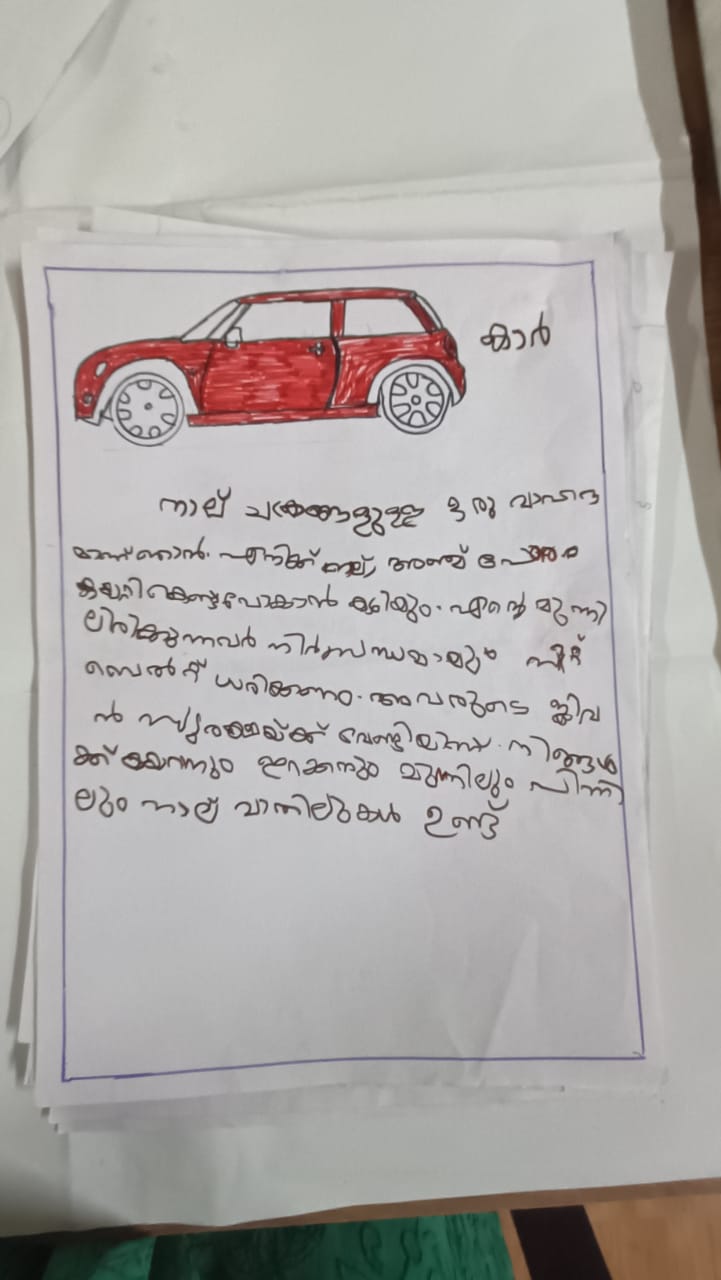 കാർ
നാല് ചക്രങ്ങളുള്ള ഒരു വാഹന
മാണ് ഞാൻ. എനിക്ക് നല്, അഞ്ച് പേരെ
കയറ്റികൊണ്ടുപോകാൻ കഴിയും. എന്റെ മുന്നി
ലിരിക്കുന്നവർ നിർബന്ധമായും സീറ്റ്
ബെൽറ്റ് ധരിക്കണം. അവരുടെ ജീവ
ൻ സുരക്ഷയ്ക്ക് വേണ്ടിയാണ്. നിങ്ങൾ
ക്ക് കയറാനും ഇറക്കനും മുന്നിലും പിന്നി
ലും നാല് വാതിലുകൾ ഉണ്ട്